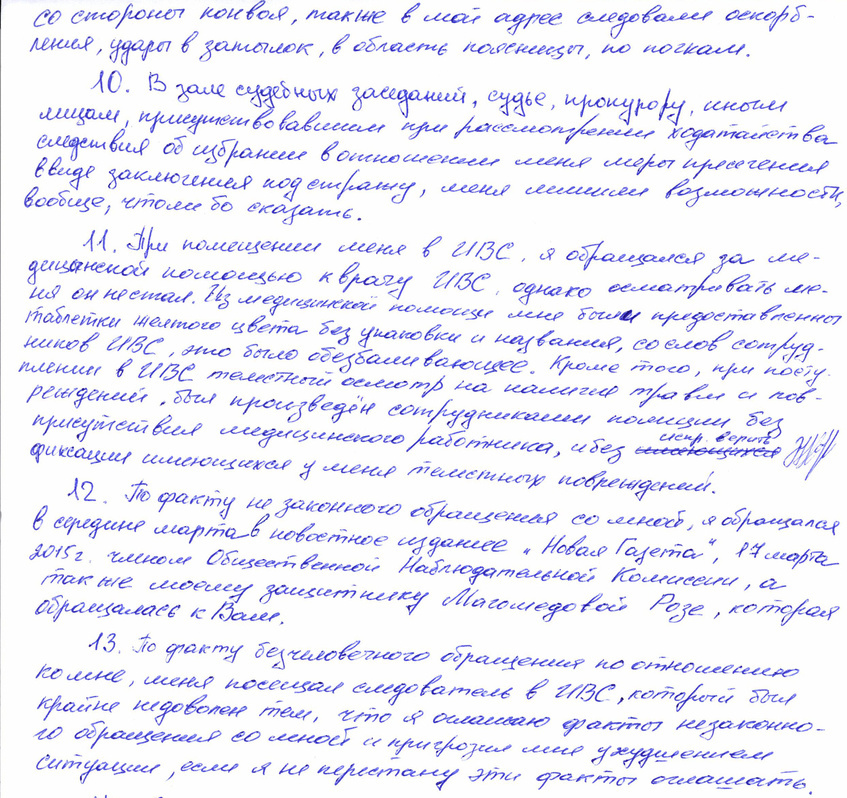 со стороны конвоя, также в мой адрес следовали оскорб-
ления, удары в затылок, в область поясницы, по почкам.
10. В зале судебных заседаний, судье, прокурору, иным
лицам, присутствовавшим при рассмотрении ходатайства
следствия об избрании в отношении меня меры пресечения
ввиде заключения под стражу, меня лишили возможности,
вообще, чтолибо сказать.
11. При помещении меня в ИВС, я обращался за ме-
дицинской помощью к врачу ИВС, однако осматривать ме-
ня он не стал. Из медицинской помощи мне были предоставленны
таблетки желтого цвета без упаковки и названия, со слов сотруд-
ников ИВС, это было обезбаливающее. Кроме того, при посту-
плении в ИВС телестный осмотр на наличие травм и пов-
реждений, был произведён сотрудниками полиции без
присутствия медицинского работника, и без имеющихся испр. верить
фиксации имеющихся у меня телестных повреждений.
12. По факту не законного обращения со мной, я обращался
в середине марта в новостное издание „Новая Газета“, 17 марта
2015г. членом Общественной Наблюдательной Комиссии, а
так же моему защитнику Магомедовой Розе, которая
обращалась к Вам.
13. По факту безчеловечного обращения по отношению
ко мне, меня посещал следователь в ИВС, который был
крайне недоволен тем, что я оглашаю факты незаконно-
го обращения со мной и пригрозил мне ухудшением
ситуации, если я не перестану эти факты оглашать.